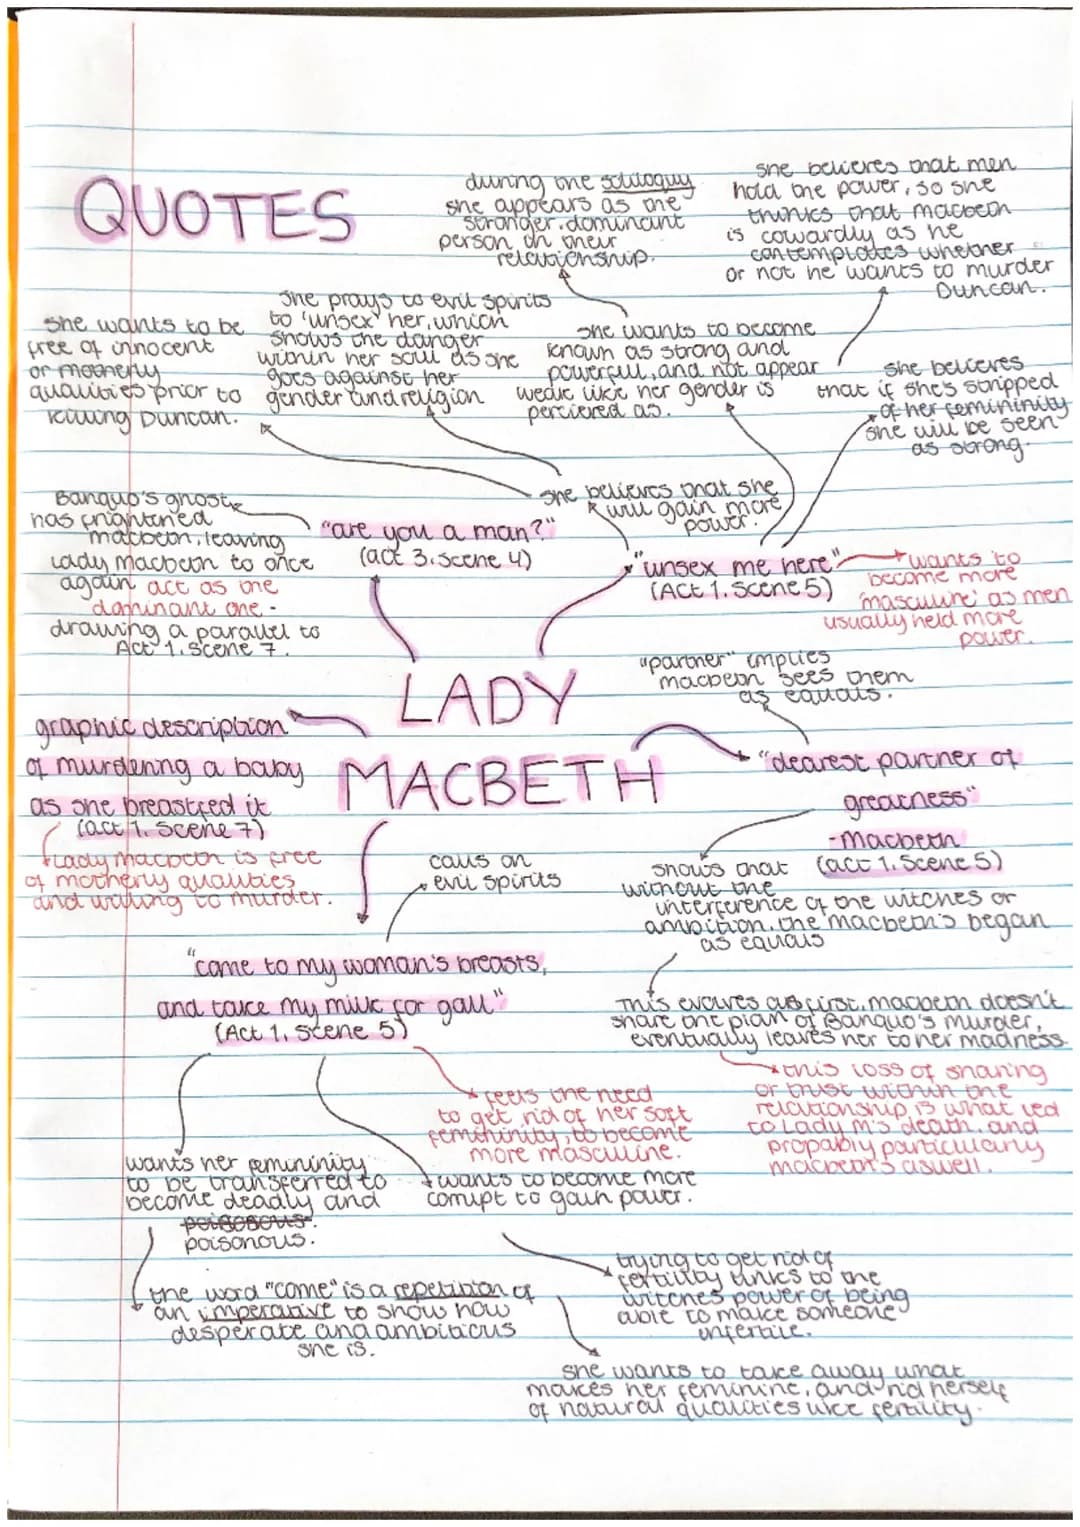 QUOTES
during the soliloquy
she appears as the
stronger, dominant
person in their
relationship.
she believes that men
hold the power, so she
thinks that macbeth
is cowardly as he
contemplates whether
or not he wants to murder
Duncan.
she wants to be
free of innocent
or motherly
qualities prior to
killing Duncan.
she prays to evil spirits
to 'unsex' her, which
shows the danger
within her soul as she
goes against her
gender and religion
she wants to become
known as strong and
powerful, and not appear
weak like her gender is
percieved as.
she believes
that if she's stripped
of her femininity
she will be seen
as strong.
she believes that she
will gain more
power.
Banquo's ghost
has frightened
macbeth, leaving
Lady macbeth to once
again act as the
dominant one -
drawing a parallel to
Act 1, Scene 7.
"are you a man?"
(act 3, scene 4)
"unsex me here"
(Act 1, Scene 5)
wants to
become more
'masculine' as men
usually held more
power.
LADY
MACBETH
"partner" implies
macbeth sees them
as equals.
"dearest partner of
greatness"
-Macbeth
(act 1, Scene 5)
graphic description
of murdering a baby
as she breastfed it
(act 1, Scene 7)
Lady macbeth is free
of motherly qualities
and willing to murder.
calls on
evil spirits
shows that
without the
interference of the witches or
ambition, the macbeth's began
as equals
"come to my woman's breasts,
and take my milk for gall"
(Act 1, Scene 5)
This evolves as first, macbeth doesn't
share the plan of Banquo's murder,
eventually leaves her to her madness
this loss of sharing
or trust within the
relationship is what led
to Lady M's death, and
propably particularly
macbeth's aswell.
feels the need
to get rid of her soft
femininity, to become
more masculine.
wants her femininity
to be transferred to
become deadly and
poisonous.
wants to become more
corrupt to gain power.
trying to get rid of
fertility links to the
witches power of being
able to make someone
infertile.
the word "come" is a repetition of
an imperative to show how
desperate and ambitious
she is.
she wants to take away what
makes her feminine, and rid herself
of natural qualities like fertility.